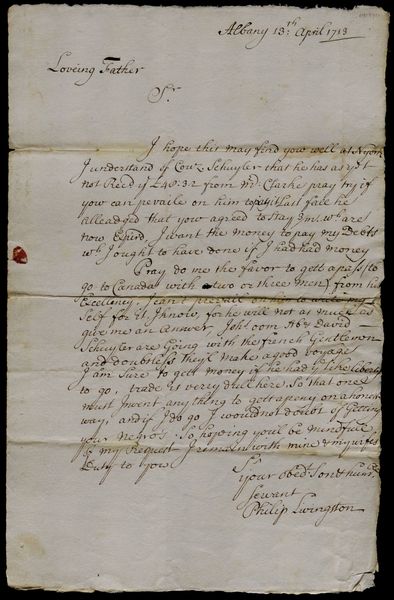 Albany 13:th April 1713
Loveing Father
Sr.
I hope this may find you well at NYork
I understand of Cour. Schuyler that he has as yet
not Recd. ye £48:32 from Mr. Clarke pray try if
you can prevaile on him to pay it Last fall he
alleadged that you agreed to stay 3 ms. wh. are
now Expird I want the money to pay my Debts
wh. I ought to have done if I had had money
Pray do me the favor to gett a pass to
go to Canada with two or three men from his
Excellency. I can't prevail on him to write my
Self for it. I know for he will not as much as
give me an Answer. Joh: oom Ab: David
Schuyler are Going with the french Gentlemen
and doubtless they'l make a good Voyage
I am Sure to gett money if he had ye like liberty
to go, trade is verry dull here. So that one
must Invent any thing to gett a peny on a honor
way, and if I do go I would not doubt of Getting
your Negros. So hoping youl be mindfull
of my Request I remain with mine & my wifes
Duty to You
Sr
Your obedt. Son & hum.
Servant
Philip Livingston